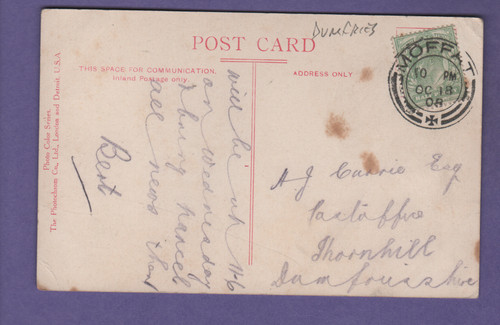 DUMFRIES
POST CARD
THIS SPACE FOR COMMUNICATION.
Inland Postage only.
ADDRESS ONLY
MOFFAT
10 PM
OC 18
08
Photo Color Series.
The Photochrom Co., Ltd., London and Detroit, U.S.A.
will be up
on wednesday
& bring
all news
Bert
A J Currie Esq
Postoffice
Thornhill
Dumfriesshire